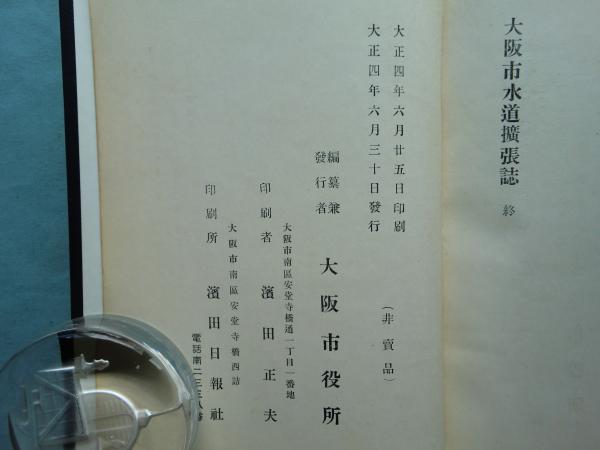 大阪市水道擴張誌 終
大正四年六月廿五日印刷
大正四年六月三十日發行
(非賣品)
編纂兼
發行者
大阪市役所
大阪市南區安堂寺橋通一丁目一番地
印刷者 濱田正夫
大阪市南區安堂寺橋西詰
印刷所 濱田日報社
電話南二三三八番